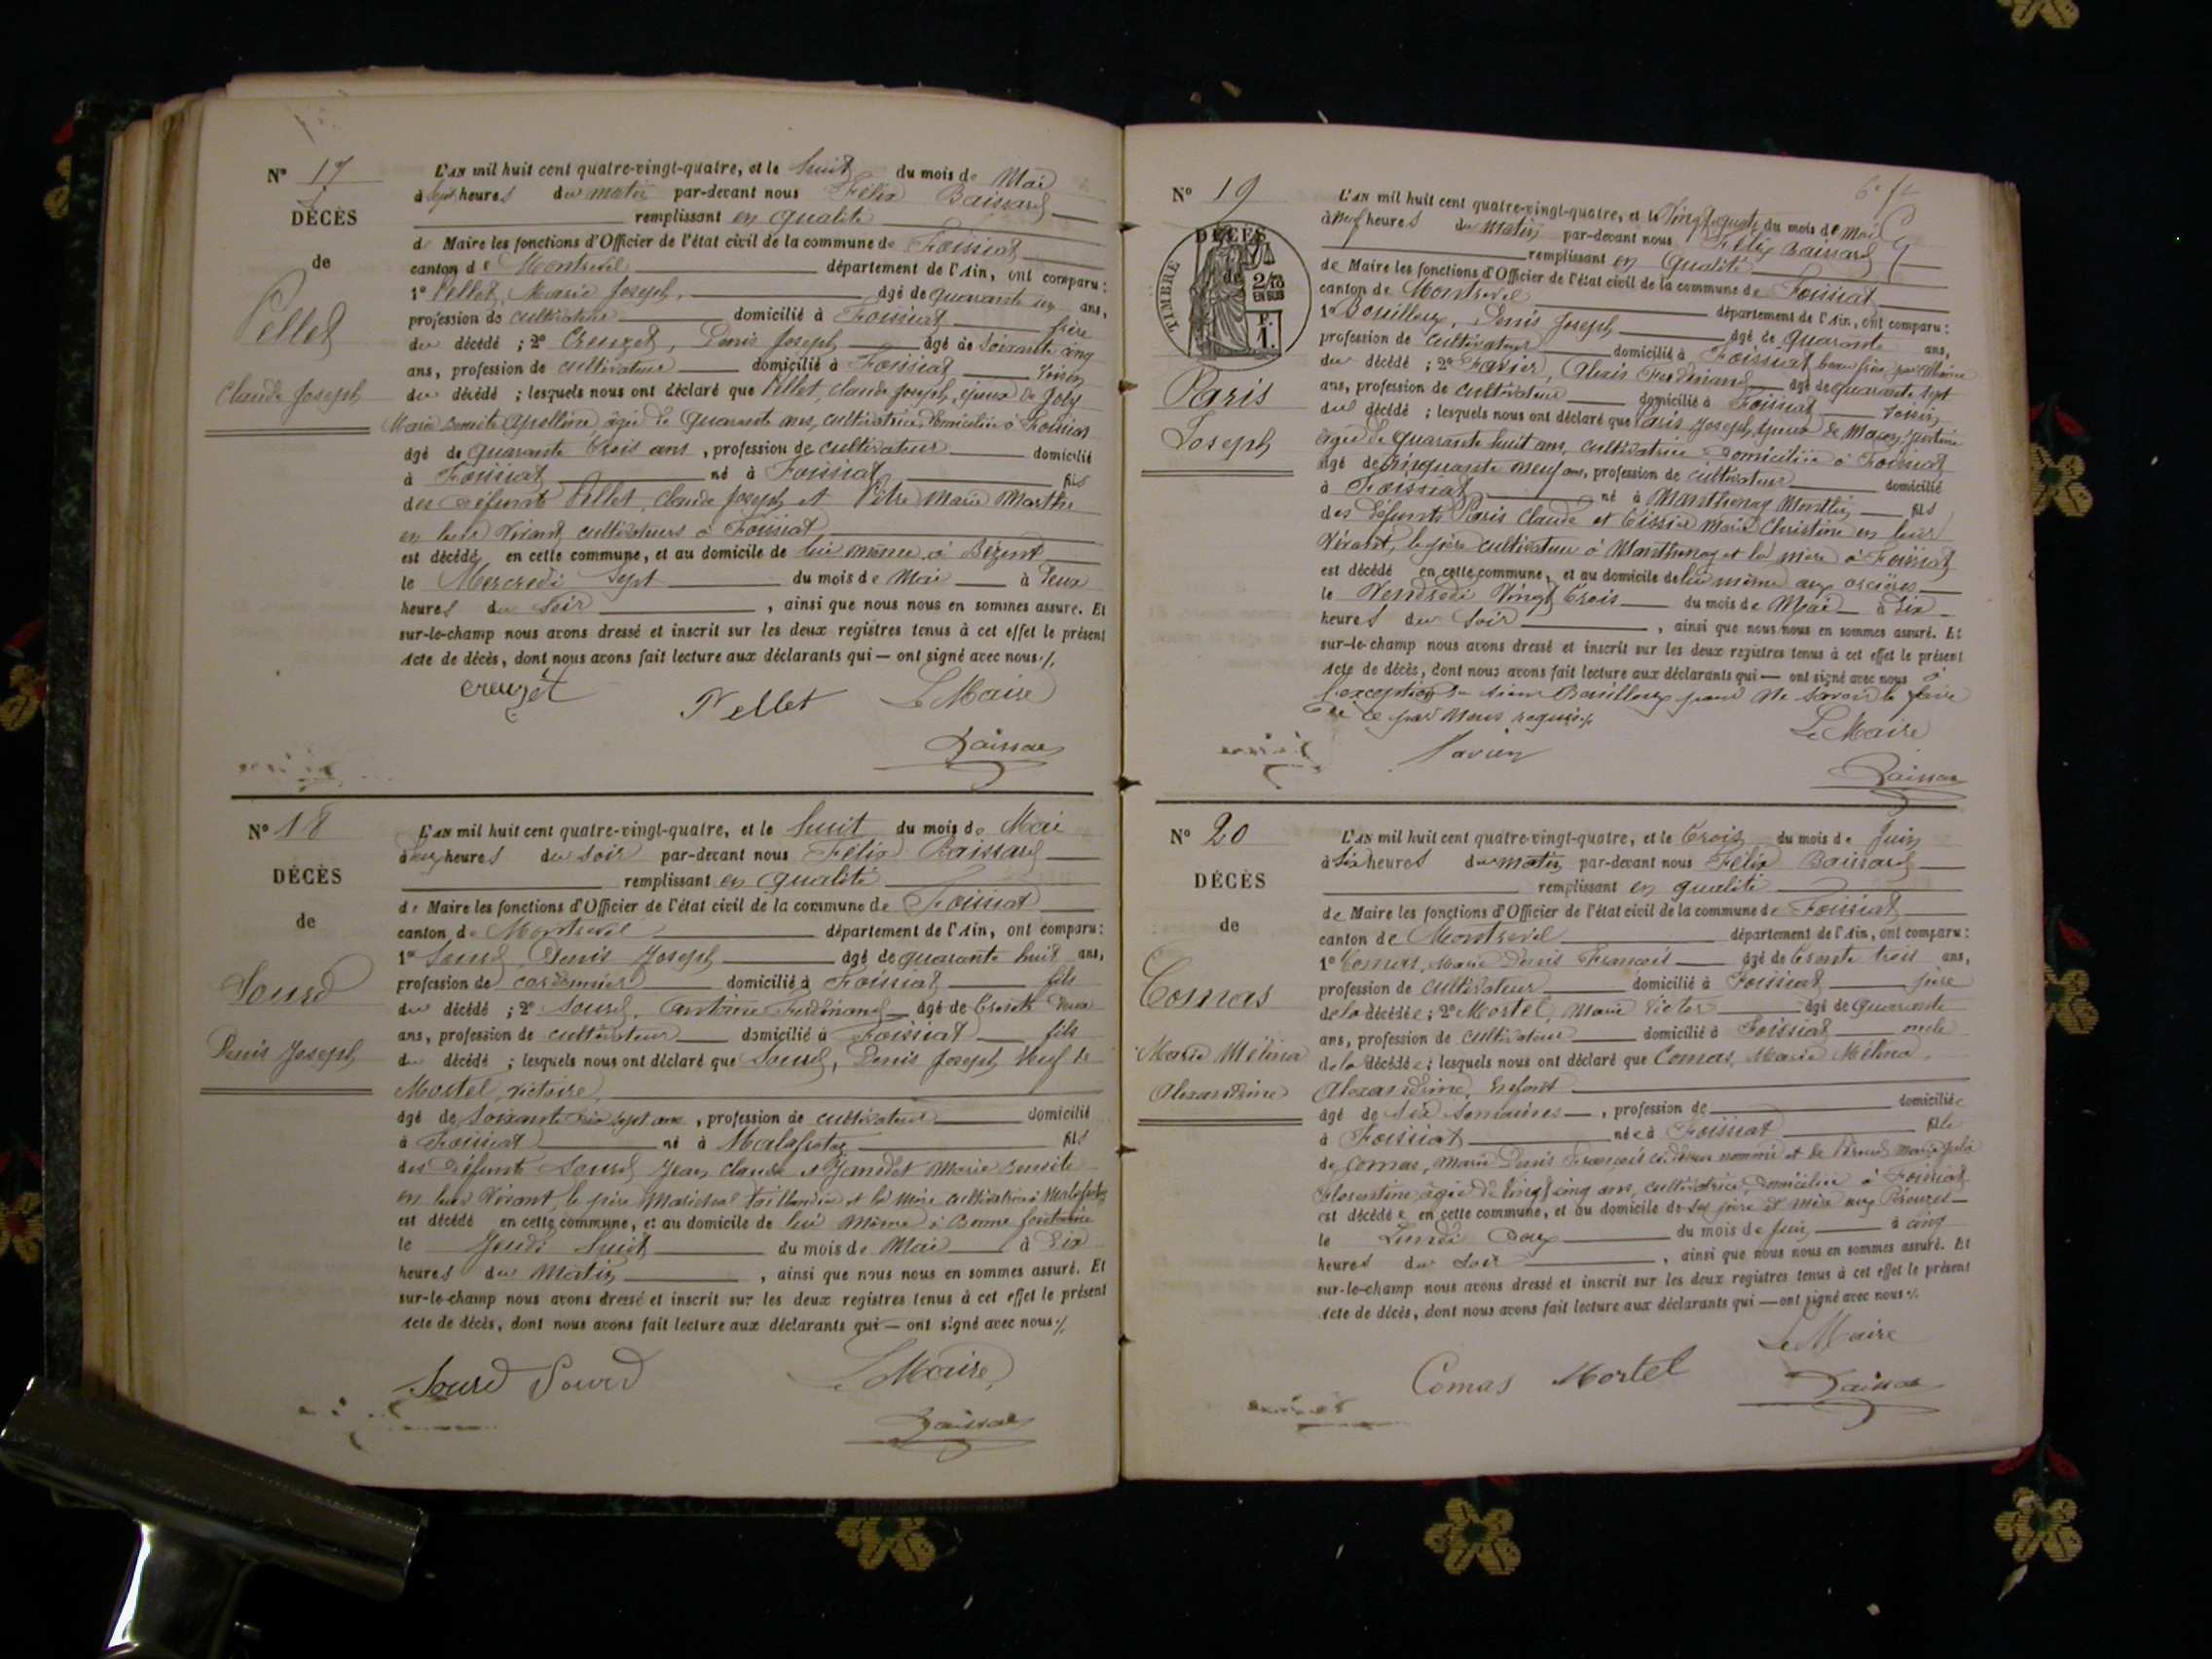 Nº 17
DÉCÈS
de
Pellet
Claude Joseph
L'AN mil huit cent quatre-vingt-quatre, et le huit du mois de Mai
à sept heures du matin par-devant nous Félix Baissard
remplissant en qualité
de Maire les fonctions d'Officier de l'état civil de la commune de Foissiat
canton de Montrevel département de l'Ain, ont comparu :
1º Pellet, Marie Joseph, âgé de quarante un ans,
profession de cultivateur domicilié à Foissiat frère
du décédé ; 2º Creuzet, Denis Joseph âgé de soixante cinq
ans, profession de cultivateur domicilié à Foissiat voisin
du décédé ; lesquels nous ont déclaré que Pellet, Claude Joseph, époux de Joly
Marie Benoite Apolline âgée de quarante ans, cultivatrice, domiciliée à Foissiat
âgé de quarante trois ans, profession de cultivateur domicilié
à Foissiat né à Foissiat fils
des défunts Pellet, Claude Joseph et Pitre Marie Marthe
en leur vivant cultivateurs à Foissiat
est décédé en cette commune, et au domicile de lui même, à
le Mercredi sept du mois de Mai à deux
heures du soir, ainsi que nous nous en sommes assuré. Et
sur-le-champ nous avons dressé et inscrit sur les deux registres tenus à cet effet le présent
Acte de décès, dont nous avons fait lecture aux déclarants qui — ont signé avec nous ./.
creuzet Pellet Le Maire
Baissard
Nº 18
DÉCÈS
de
Sourd
Denis Joseph
L'AN mil huit cent quatre-vingt-quatre, et le huit du mois de Mai
à heures du soir par-devant nous Félix Baissard
remplissant en qualité
de Maire les fonctions d'Officier de l'état civil de la commune de Foissiat
canton de Montrevel département de l'Ain, ont comparu :
1º Sourd, Denis Joseph âgé de quarante huit ans,
profession de cordonnier domicilié à Foissiat fils
du décédé ; 2º Sourd, Antoine Ferdinand âgé de trente deux
ans, profession de cultivateur domicilié à Foissiat fils
du décédé ; lesquels nous ont déclaré que Sourd, Denis Joseph veuf de
Mortel, Victoire,
âgé de soixante dix sept ans, profession de cultivateur domicilié
à Foissiat né à Malafretaz fils
des défunts Sourd Jean Claude et Jandet Marie Benoite
en leur vivant, le père Maréchal Taillandier et la mère cultivatrice à Malafretaz
est décédé en cette commune, et au domicile de lui même à Bonne fontaine
le Jeudi huit du mois de Mai à dix
heures du matin, ainsi que nous nous en sommes assuré. Et
sur-le-champ nous avons dressé et inscrit sur les deux registres tenus à cet effet le présent
Acte de décès, dont nous avons fait lecture aux déclarants qui — ont signé avec nous ./.
Sourd Sourd Le Maire
Baissard
Nº 19
DÉCÈS
de
TIMBRE
2/10
EN SUS
F.
1.
Paris
Joseph
L'AN mil huit cent quatre-vingt-quatre, et le vingt quatre du mois de Mai
à neuf heures du matin par-devant nous Félix Baissard
remplissant en qualité
de Maire les fonctions d'Officier de l'état civil de la commune de Foissiat
canton de Montrevel département de l'Ain, ont comparu :
1º Bouilloux, Denis Joseph âgé de quarante ans,
profession de cultivateur domicilié à Foissiat beau frère par alliance
du décédé ; 2º Favier, Alexis Ferdinand âgé de quarante sept
ans, profession de cultivateur domicilié à Foissiat voisin
du décédé ; lesquels nous ont déclaré que Paris Joseph, époux de
âgée de quarante huit ans, cultivatrice domiciliée à Foissiat
âgé de cinquante neuf ans, profession de cultivateur domicilié
à Foissiat né à Manthenay Montlin fils
des défunts Paris Claude et Tissier Marie Christine en leur
vivant, le père cultivateur à Manthenay et la mère à Foissiat
est décédé en cette commune, et au domicile de lui même aux orcières
le Vendredi vingt trois du mois de Mai à dix
heures du soir, ainsi que nous nous en sommes assuré. Et
sur-le-champ nous avons dressé et inscrit sur les deux registres tenus à cet effet le présent
Acte de décès, dont nous avons fait lecture aux déclarants qui — ont signé avec nous à
l'exception du sieur Bouilloux pour ne savoir le faire
de ce par nous requis ./.
Favier Le Maire
Baissard
Nº 20
DÉCÈS
de
Comas
Marie Mélina
Alexandrine
L'AN mil huit cent quatre-vingt-quatre, et le trois du mois de Juin
à six heures du matin par-devant nous Félix Baissard
remplissant en qualité
de Maire les fonctions d'Officier de l'état civil de la commune de Foissiat
canton de Montrevel département de l'Ain, ont comparu :
1º Comas, Marie Denis François âgé de trente trois ans,
profession de cultivateur domicilié à Foissiat père
de la décédée ; 2º Mortel, Marie Victor âgé de quarante
ans, profession de cultivateur domicilié à Foissiat oncle
de la décédée ; lesquels nous ont déclaré que Comas, Marie Mélina
Alexandrine, Enfant
âgé de six semaines, profession de domiciliée
à Foissiat née à Foissiat fille
de Comas, Marie Denis François ci-dessus nommé et de Marie Julie
Florentine, âgée de vingt cinq ans, cultivatrice, domiciliée à Foissiat
est décédée en cette commune, et au domicile de ses père et mère aux
le Lundi deux du mois de Juin à cinq
heures du soir, ainsi que nous nous en sommes assuré. Et
sur-le-champ nous avons dressé et inscrit sur les deux registres tenus à cet effet le présent
Acte de décès, dont nous avons fait lecture aux déclarants qui — ont signé avec nous ./.
Le Maire
Comas Mortel
Baissard